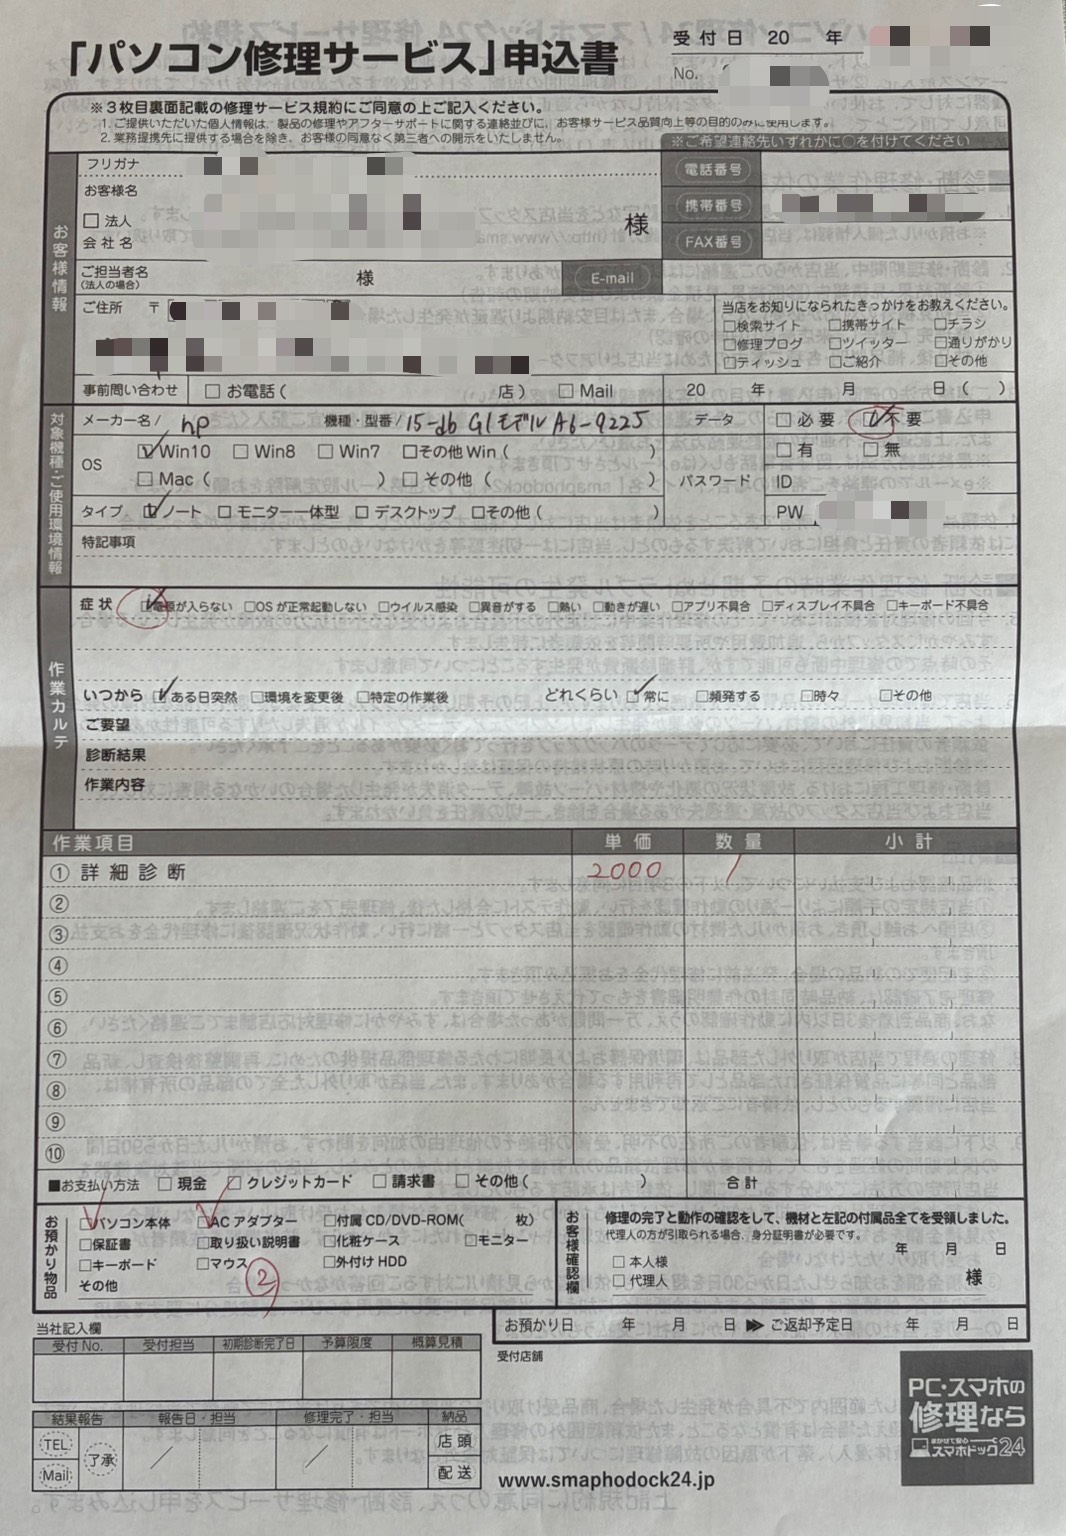 「パソコン修理サービス」申込書
受付日 20 年
No.
※3枚目裏面記載の修理サービス規約にご同意の上ご記入ください。
1. ご提供いただいた個人情報は、製品の修理やアフターサポートに関する連絡並びに、お客様サービス品質向上等の目的のみに使用します。
2. 業務提携先に提供する場合を除き、お客様の同意なく第三者への開示をいたしません。
※ご希望連絡先いずれかに○を付けてください
お客様情報
フリガナ
お客様名
□ 法人
会社名
様
電話番号
携帯番号
FAX番号
ご担当者名
(法人の場合)
様
E-mail
ご住所 〒
当店をお知りになられたきっかけをお教えください。
□検索サイト □携帯サイト □チラシ
□修理ブログ □ツイッター □通りがかり
□ティッシュ □ご紹介 □その他
事前問い合わせ □ お電話 ( 店 ) □ Mail 20 年 月 日 ( )
対象機種・ご使用環境情報
メーカー名 / hp 機種・型番 / 15-db G1モデル A6-9225
データ □ 必要 ☑ 不要
OS ☑ Win10 □ Win8 □ Win7 □その他 Win ( )
□ Mac ( ) □ その他 ( )
パスワード □ 有 □ 無
ID
PW
タイプ ☑ ノート □ モニター一体型 □ デスクトップ □その他 ( )
特記事項
作業カルテ
症状 ☑電源が入らない □OSが正常起動しない □ウイルス感染 □異音がする □熱い □動きが遅い □アプリ不具合 □ディスプレイ不具合 □キーボード不具合
いつから ☑ある日突然 □環境を変更後 □特定の作業後 どれくらい ☑常に □頻発する □時々 □その他
ご要望
診断結果
作業内容
作業項目 単価 数量 小計
① 詳細診断 2000 1
②
③
④
⑤
⑥
⑦
⑧
⑨
⑩
■お支払い方法 □ 現金 □ クレジットカード □ 請求書 □ その他 ( ) 合計
お預かり物品
☑パソコン本体 ☑ACアダプター □付属 CD/DVD-ROM( 枚)
□保証書 □取り扱い説明書 □化粧ケース □モニター
□キーボード □マウス □外付け HDD
その他 ②
お客様確認欄
修理の完了と動作の確認をして、機材と左記の付属品全てを受領しました。
代理人の方が引取られる場合、身分証明書が必要です。
年 月 日
□ 本人様
□ 代理人
様
お預かり日 年 月 日 ▶▶ ご返却予定日 年 月 日
当社記入欄
受付 No. 受付担当 初期診断完了日 予算限度 概算見積
結果報告 報告日・担当 修理完了・担当 納品
TEL
Mail
了承
／ ／
店頭
配送
受付店舗
www.smaphodock24.jp
PC・スマホの
修理なら
まかせて安心
スマホドック24